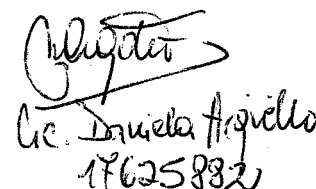 Lic. Daniela Argüello
17625882